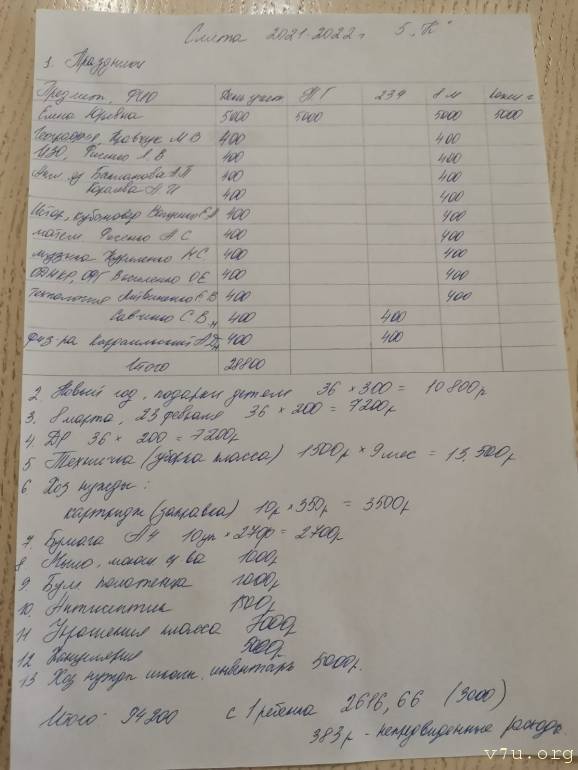 Смета 2021-2022 г 5 "К"
1. Праздники
Предмет, ФИО День учит НГ 23Ф 8 М Конец г.
Елена Юрьевна 5000 5000 5000 5000
География, Кравчук М В 400 400
ИЗО, Фисенко А В 400 400
Англ. яз 400 400
А И 400 400
Истор, 400 400
матем Фисенко А С 400 400
музыка Н С 400 400
Василенко О Е 400 400
Технология Е В 400 400
Савченко С В 400 400
физ-ра 400 400
Итого 28800
2. Новый год, подарки детям 36 × 300 = 10800р
3. 8 марта, 23 февраля 36 × 200 = 7200р
4. ДР 36 × 200 = 7200р
5 Техничка (уборка класса) 1500р × 9 мес = 13,500р
6 Хоз нужды:
картридж (заправка) 10р × 350р = 3500р
7. Бумага А4 10уп × 270р = 2700р
8 Мыло, моющ ср ва 1000р
9. Бум полотенца 1000р
10. Антисептик 1500р
11 Украшения класса 7000р
12 Канцелярия 5000р
13 Хоз нужды школы, инвентарь 5000р.
Итого: 94200 с 1 ребенка 2616,66 (3000)
383р - непредвиденные расходы
v7u.org